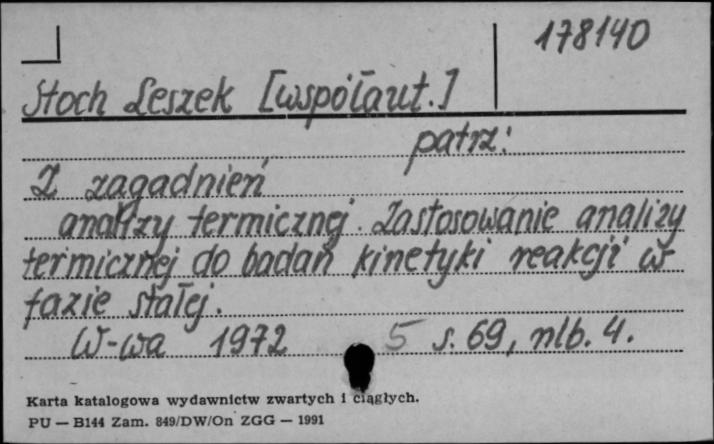 178140
Stoch Leszek [współaut.]
patrz:
Z zagadnień
analizy termicznej. Zastosowanie analizy
termicznej do badań kinetyki reakcji w
fazie stałej.
W-wa 1972 5 s. 69, nlb. 4.
Karta katalogowa wydawnictw zwartych i ciągłych.
PU — B144 Zam. 849/DW/On ZGG — 1991